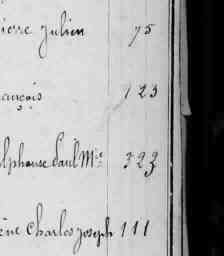 ierre Julien 75
ançois 123
lphonse Paul Mie 323
ène Charles Joseph 111